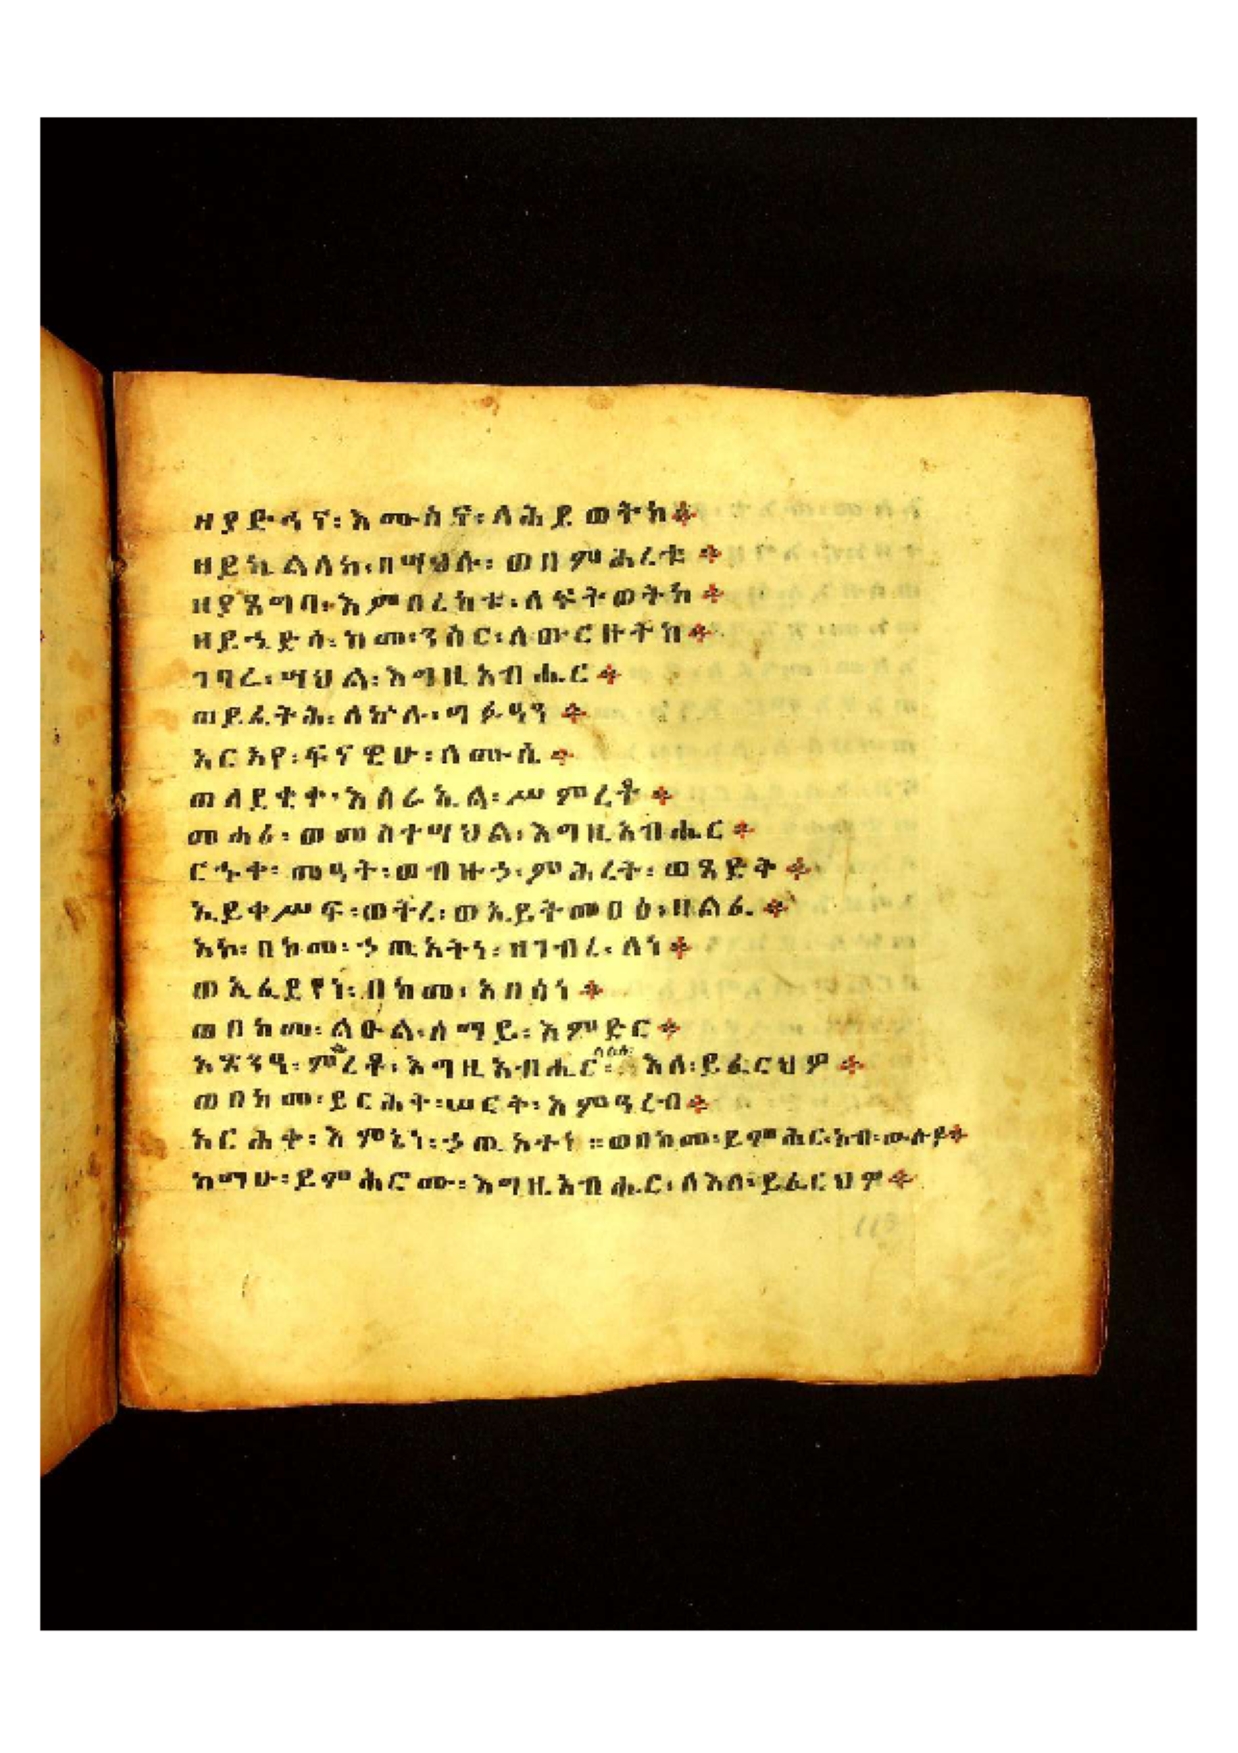 ዘያድኅና፡ እሙስና፡ ለሕይወትከ፨
ዘይኬልለከ፡ በሣህሉ፡ ወበምሕረቱ፨
ዘያጸግባ፡ እምበረከቱ፡ ለፍትወትከ፨
ዘይሔድሳ፡ ከመ፡ ንስር፡ ለውርዙትከ፨
ገባሬ፡ ሣህል፡ እግዚአብሔር፨
ወይፈትሕ፡ ለኵሉ፡ ግፉዓን፨
አርአየ፡ ፍናዊሁ፡ ለሙሴ፨
ወለደቂቀ፡ እስራኤል፡ ሥምረቶ፨
መሓሪ፡ ወመስተሣህል፡ እግዚአብሔር፨
ርኁቀ፡ መዓት፡ ወብዙኃ፡ ምሕረት፡ ወጻድቅ፨
ኢይቀሥፍ፡ ወትረ፡ ወኢይትመዐዕ፡ ዘልፈ፨
አኮ፡ በከመ፡ ኃጢአትነ፡ ዘገብረ፡ ለነ፨
ወኢፈደየነ፡ በከመ፡ አበሳነ፨
ወበከመ፡ ልዑል፡ ሰማይ፡ እምድር፨
አጽንዓ፡ ምሕረቶ፡ እግዚአብሔር፡ ላዕለ፡ እለ፡ ይፈርህዎ፨
ወበከመ፡ ይርሕቅ፡ ሠርቅ፡ እምዓረብ፨
አርሐቀ፡ እምኔነ፡ ኃጢአተነ ። ወበከመ፡ ይምሕር፡ አብ፡ ውሉዶ፨
ከማሁ፡ ይምሕሮሙ፡ እግዚአብሔር፡ ለእለ፡ ይፈርህዎ፨